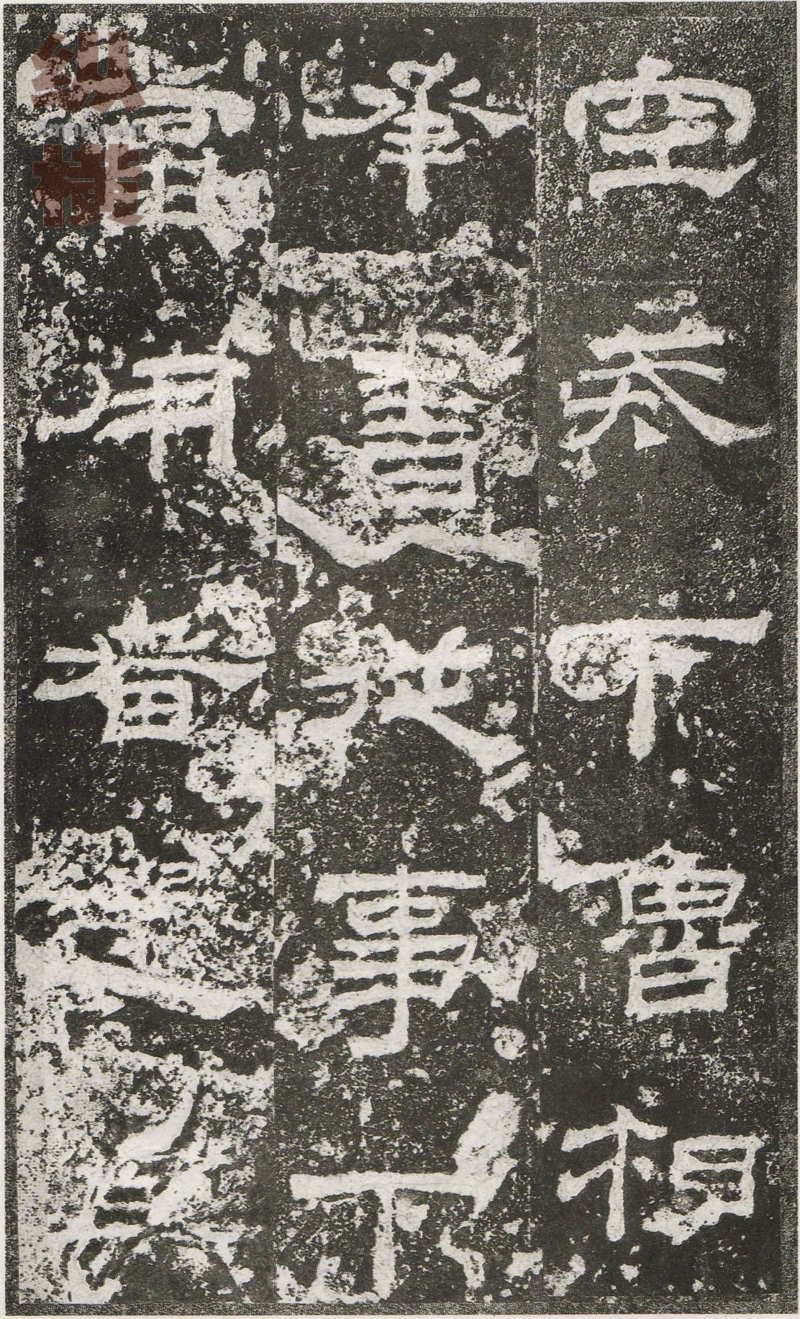 空戒下魯相
承書從事下
當用者選其
纵横